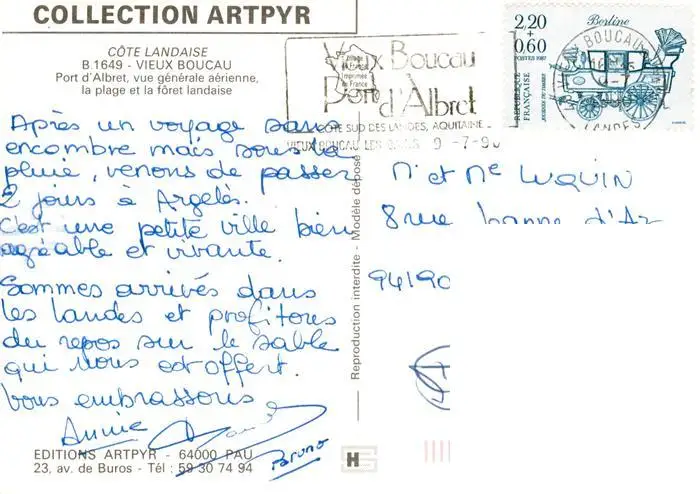 COLLECTION ARTPYR
CÔTE LANDAISE
B.1649 - VIEUX BOUCAU
Port d'Albret, vue générale aérienne,
la plage et la fôret landaise
Après un voyage sans
encombre mais sous la
pluie, venons de passer
2 jours à Argelès.
C'est une petite ville bien
agréable et vivante.
Sommes arrivés dans
les landes et profitons
du repos sur le sable
qui nous est offert.
Vous embrassons
Annie
Bruno
EDITIONS ARTPYR - 64000 PAU
23, av. de Buros - Tél : 59 30 74 94
Reproduction interdite - Modèle déposé
Vieux Boucau
Port d'Albret
CÔTE SUD DES LANDES, AQUITAINE
9-7-90
2,20
+
0,60
Berline
POSTES 1987
RÉPUBLIQUE FRANÇAISE
JOURNÉE DU TIMBRE
VIEUX BOUCAU
LANDES
Mr et Me LUQUIN
8 rue
94190